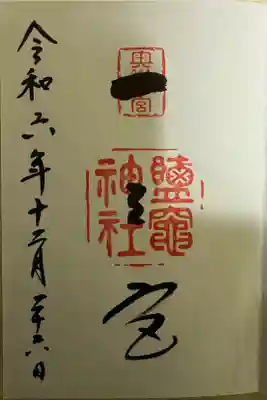 一之宮
鹽竈
神社
令和六年十二月二十六日